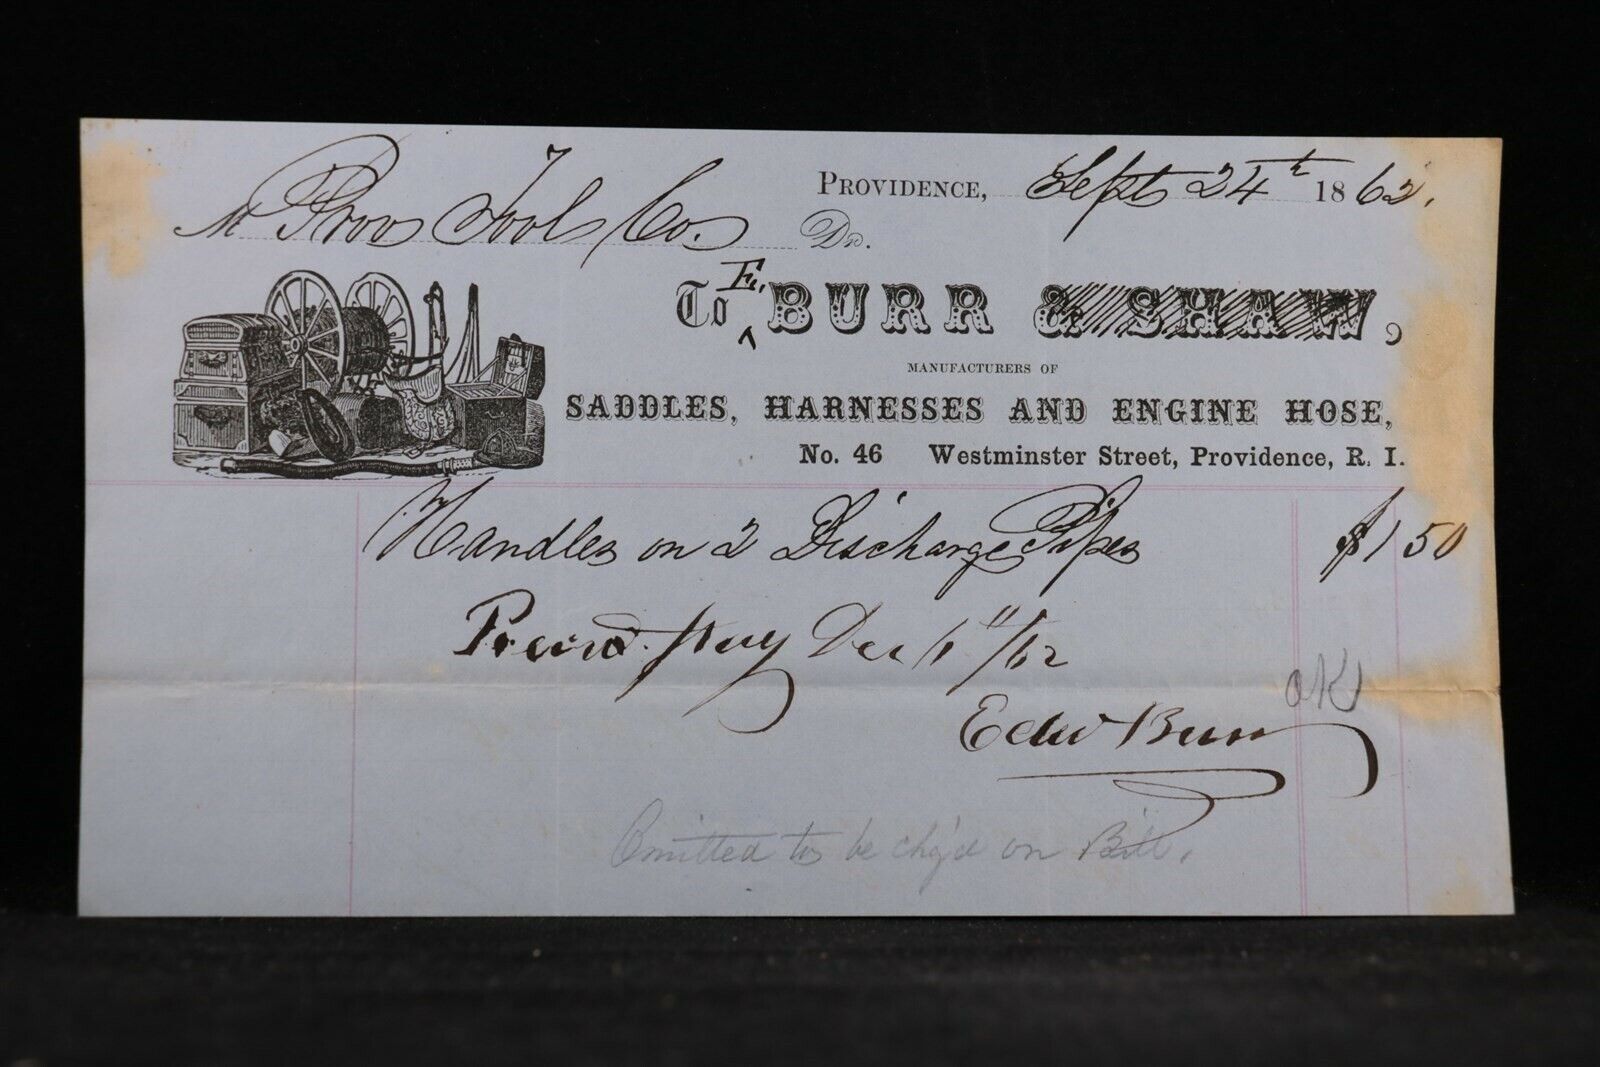 Providence, Sept 24th 1862.
M Prov Tool Co. Dr.
To E. Burr & Shaw,
MANUFACTURERS OF
SADDLES, HARNESSES AND ENGINE HOSE,
No. 46 Westminster Street, Providence, R. I.
Handles on 2 Discharge Pipes $1 50
Dec 1 /62
OK
Edw Burr
Omitted to be ch'g'd on Bill.